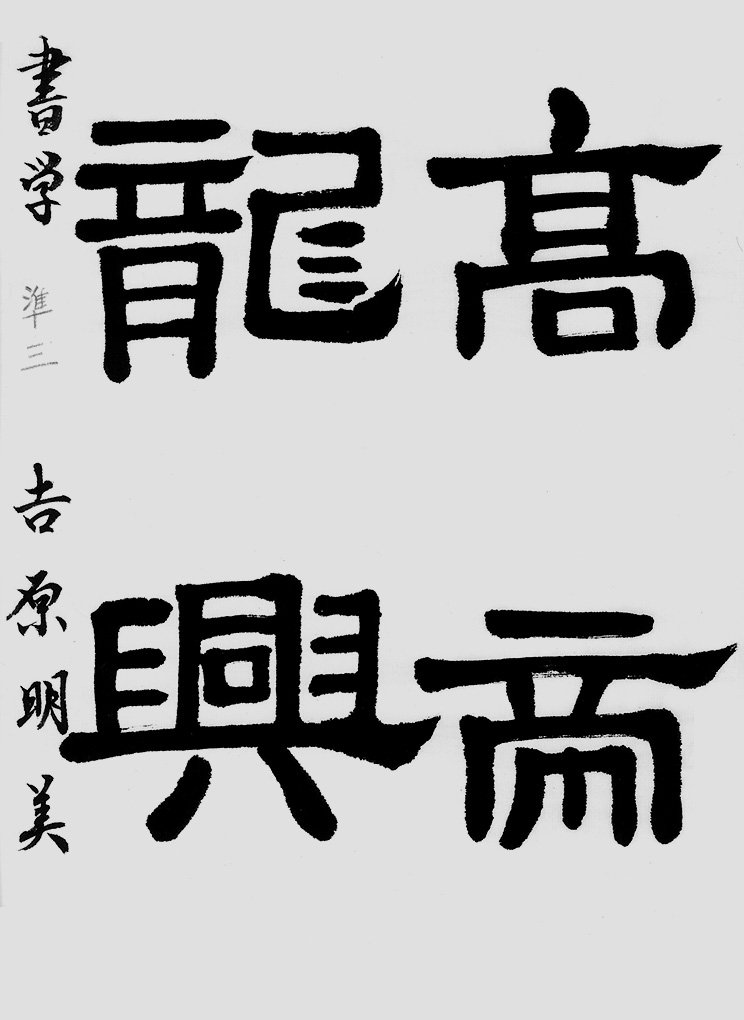 髙帝
龍興
書学 準三 吉原明美